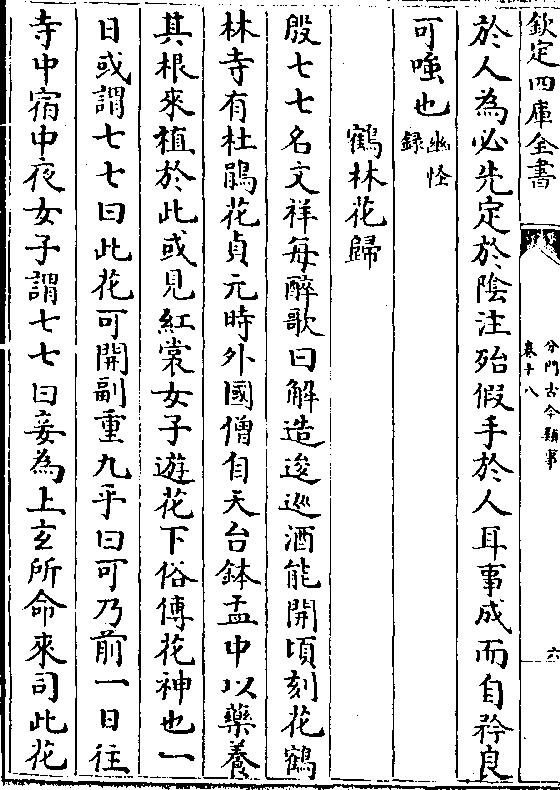 欽定四庫全書
分門古今類事
卷十八
六
於人為必先定於陰注殆假手於人耳事成而自矜良
可嗤也幽怪
録
鶴林花歸
殷七七名文祥每醉歌曰解造逡巡酒能開頃刻花鶴
林寺有杜鵑花貞元時外國僧自天台鉢盂中以藥養
其根來植於此或見紅裳女子遊花下俗傳花神也一
日或謂七七曰此花可開副重九乎曰可乃前一日往
寺中宿中夜女子謂七七曰妾為上玄所命來司此花